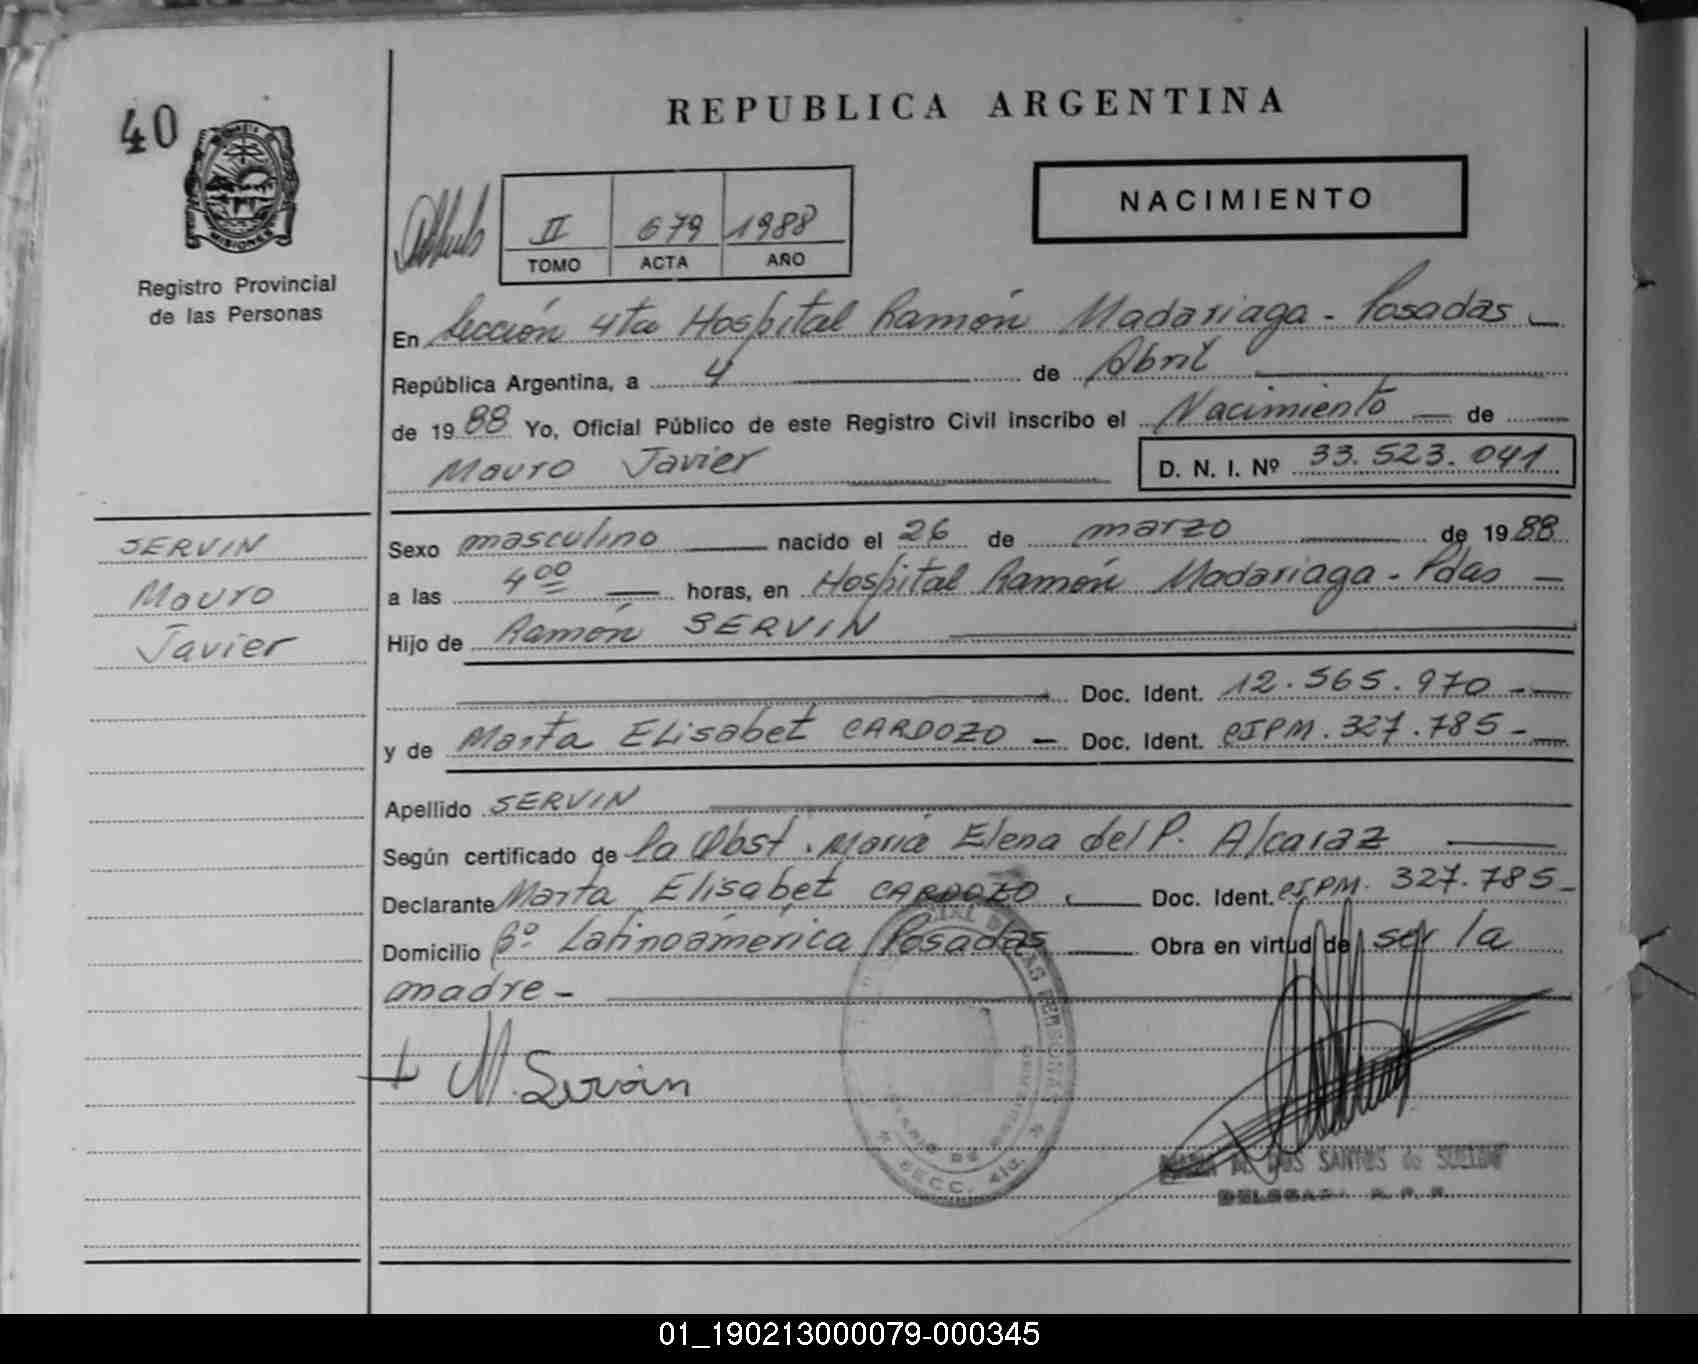 40
REPUBLICA ARGENTINA
NACIMIENTO
II 679 1988
TOMO ACTA AÑO
MISIONES
Registro Provincial
de las Personas
En Sección 4ta Hospital Ramón Madariaga - Posadas
República Argentina, a 4 de Abril
de 1988 Yo, Oficial Público de este Registro Civil inscribo el Nacimiento de
Mauro Javier D. N. I. Nº 33.523.041
SERVIN
Mauro
Javier
Sexo masculino nacido el 26 de marzo de 1988
a las 400 horas, en Hospital Ramón Madariaga - Pdas
Hijo de Ramón SERVIN
Doc. Ident. 12.565.970
y de Marta Elisabet CARDOZO Doc. Ident. CIPM. 327.785
Apellido SERVIN
Según certificado de la Obst. María Elena del P. Alcaraz
Declarante Marta Elisabet CARDOZO Doc. Ident. CIPM. 327.785
Domicilio Bº Latinoamérica Posadas Obra en virtud de ser la
madre
M. Servin
SECC. 4ta.
DOS SANTOS de
DELEGADA R. P. P.
01_190213000079-000345